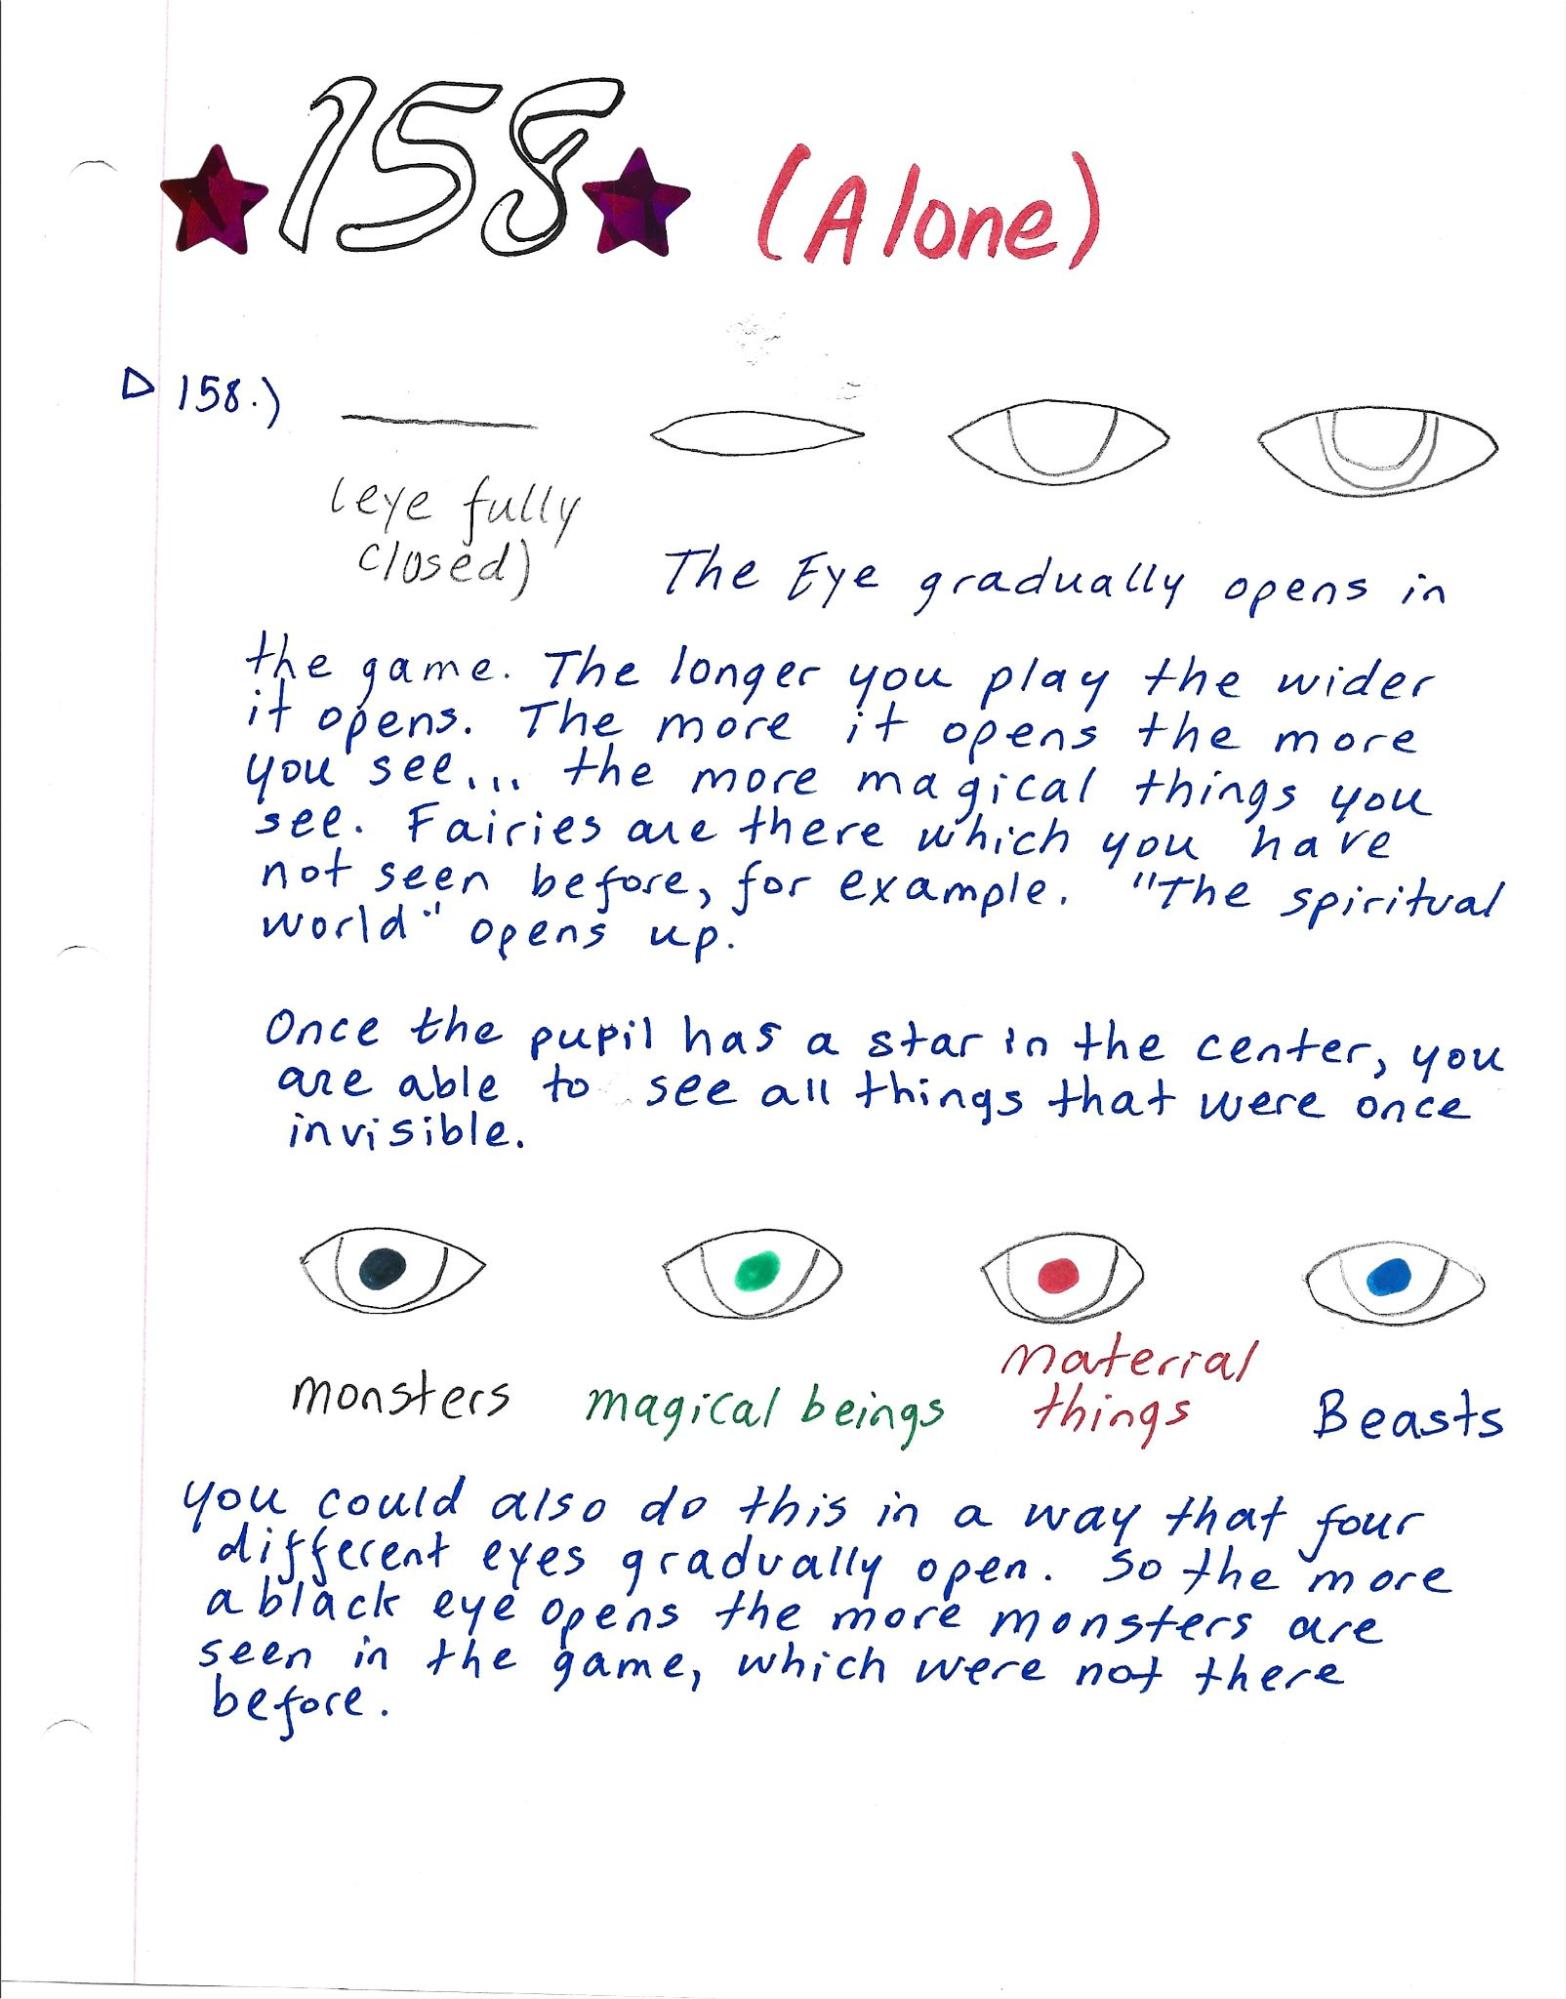 158 (Alone)
158.)
(eye fully
closed)
The Eye gradually opens in
the game. The longer you play the wider
it opens. The more it opens the more
you see... the more magical things you
see. Fairies are there which you have
not seen before, for example. "The spiritual
world" opens up.
Once the pupil has a star in the center, you
are able to see all things that were once
invisible.
monsters
magical beings
material
things
Beasts
you could also do this in a way that four
different eyes gradually open. So the more
a black eye opens the more monsters are
seen in the game, which were not there
before.